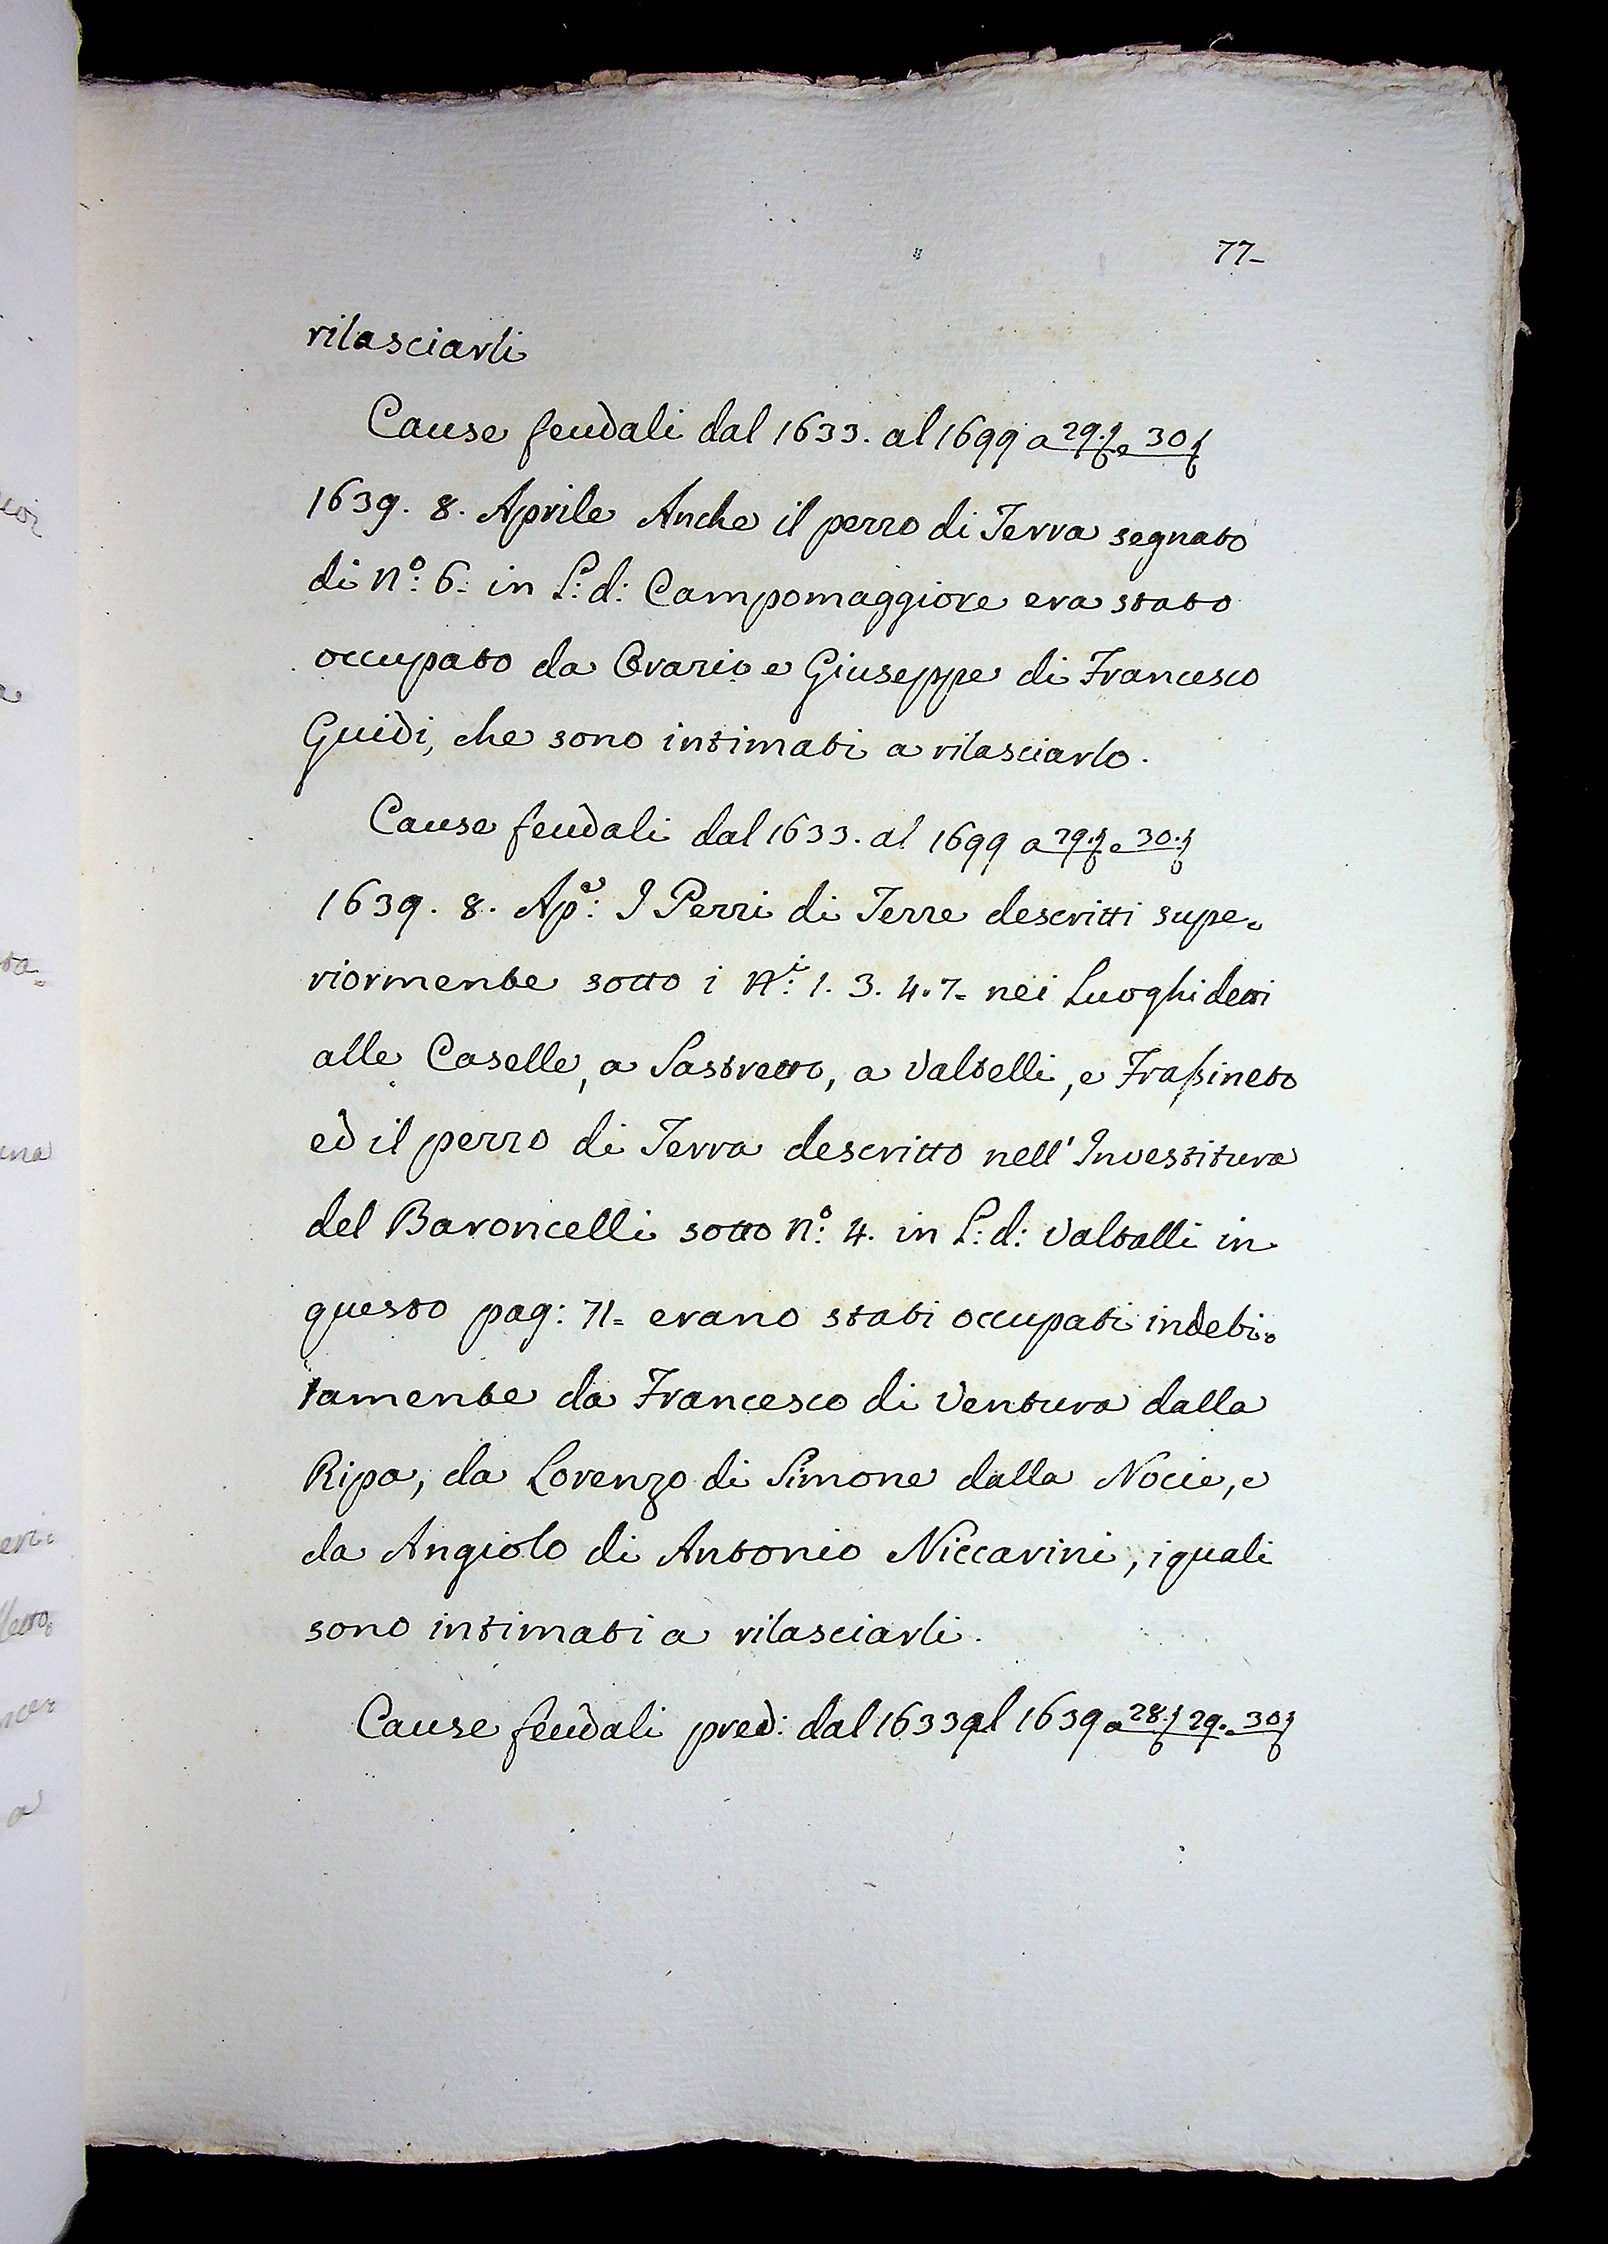 77-
rilasciarli
Cause feudali dal 1633. al 1699 a 29. e 30
1639. 8. Aprile Anche il pezzo di Terra segnato
di N.º: 6: in L: d: Campomaggiore era stato
occupato da Orazio e Giuseppe di Francesco
Guidi, che sono intimati a rilasciarlo.
Cause feudali dal 1633. al 1699 a 29. e 30.
1639. 8. Ap.e: I Pezzi di Terre descritti supe=
riormente sotto i N.i: 1. 3. 4. 7= nei Luoghi detti
alle Caselle, a Sastretto, a Valtelli, e Fraßineto
ed il pezzo di Terra descritto nell' Investitura
del Baroncelli sotto N.º: 4. in L: d: Valtalli in
questo pag: 71= erano stati occupati indebi=
tamente da Francesco di Ventura dalla
Ripa, da Lorenzo di Simone dalla Nocie, e
da Angiolo di Antonio Niccarini, i quali
sono intimati a rilasciarli.
Cause feudali pred: dal 1633 al 1639 a 28. 29. e 30